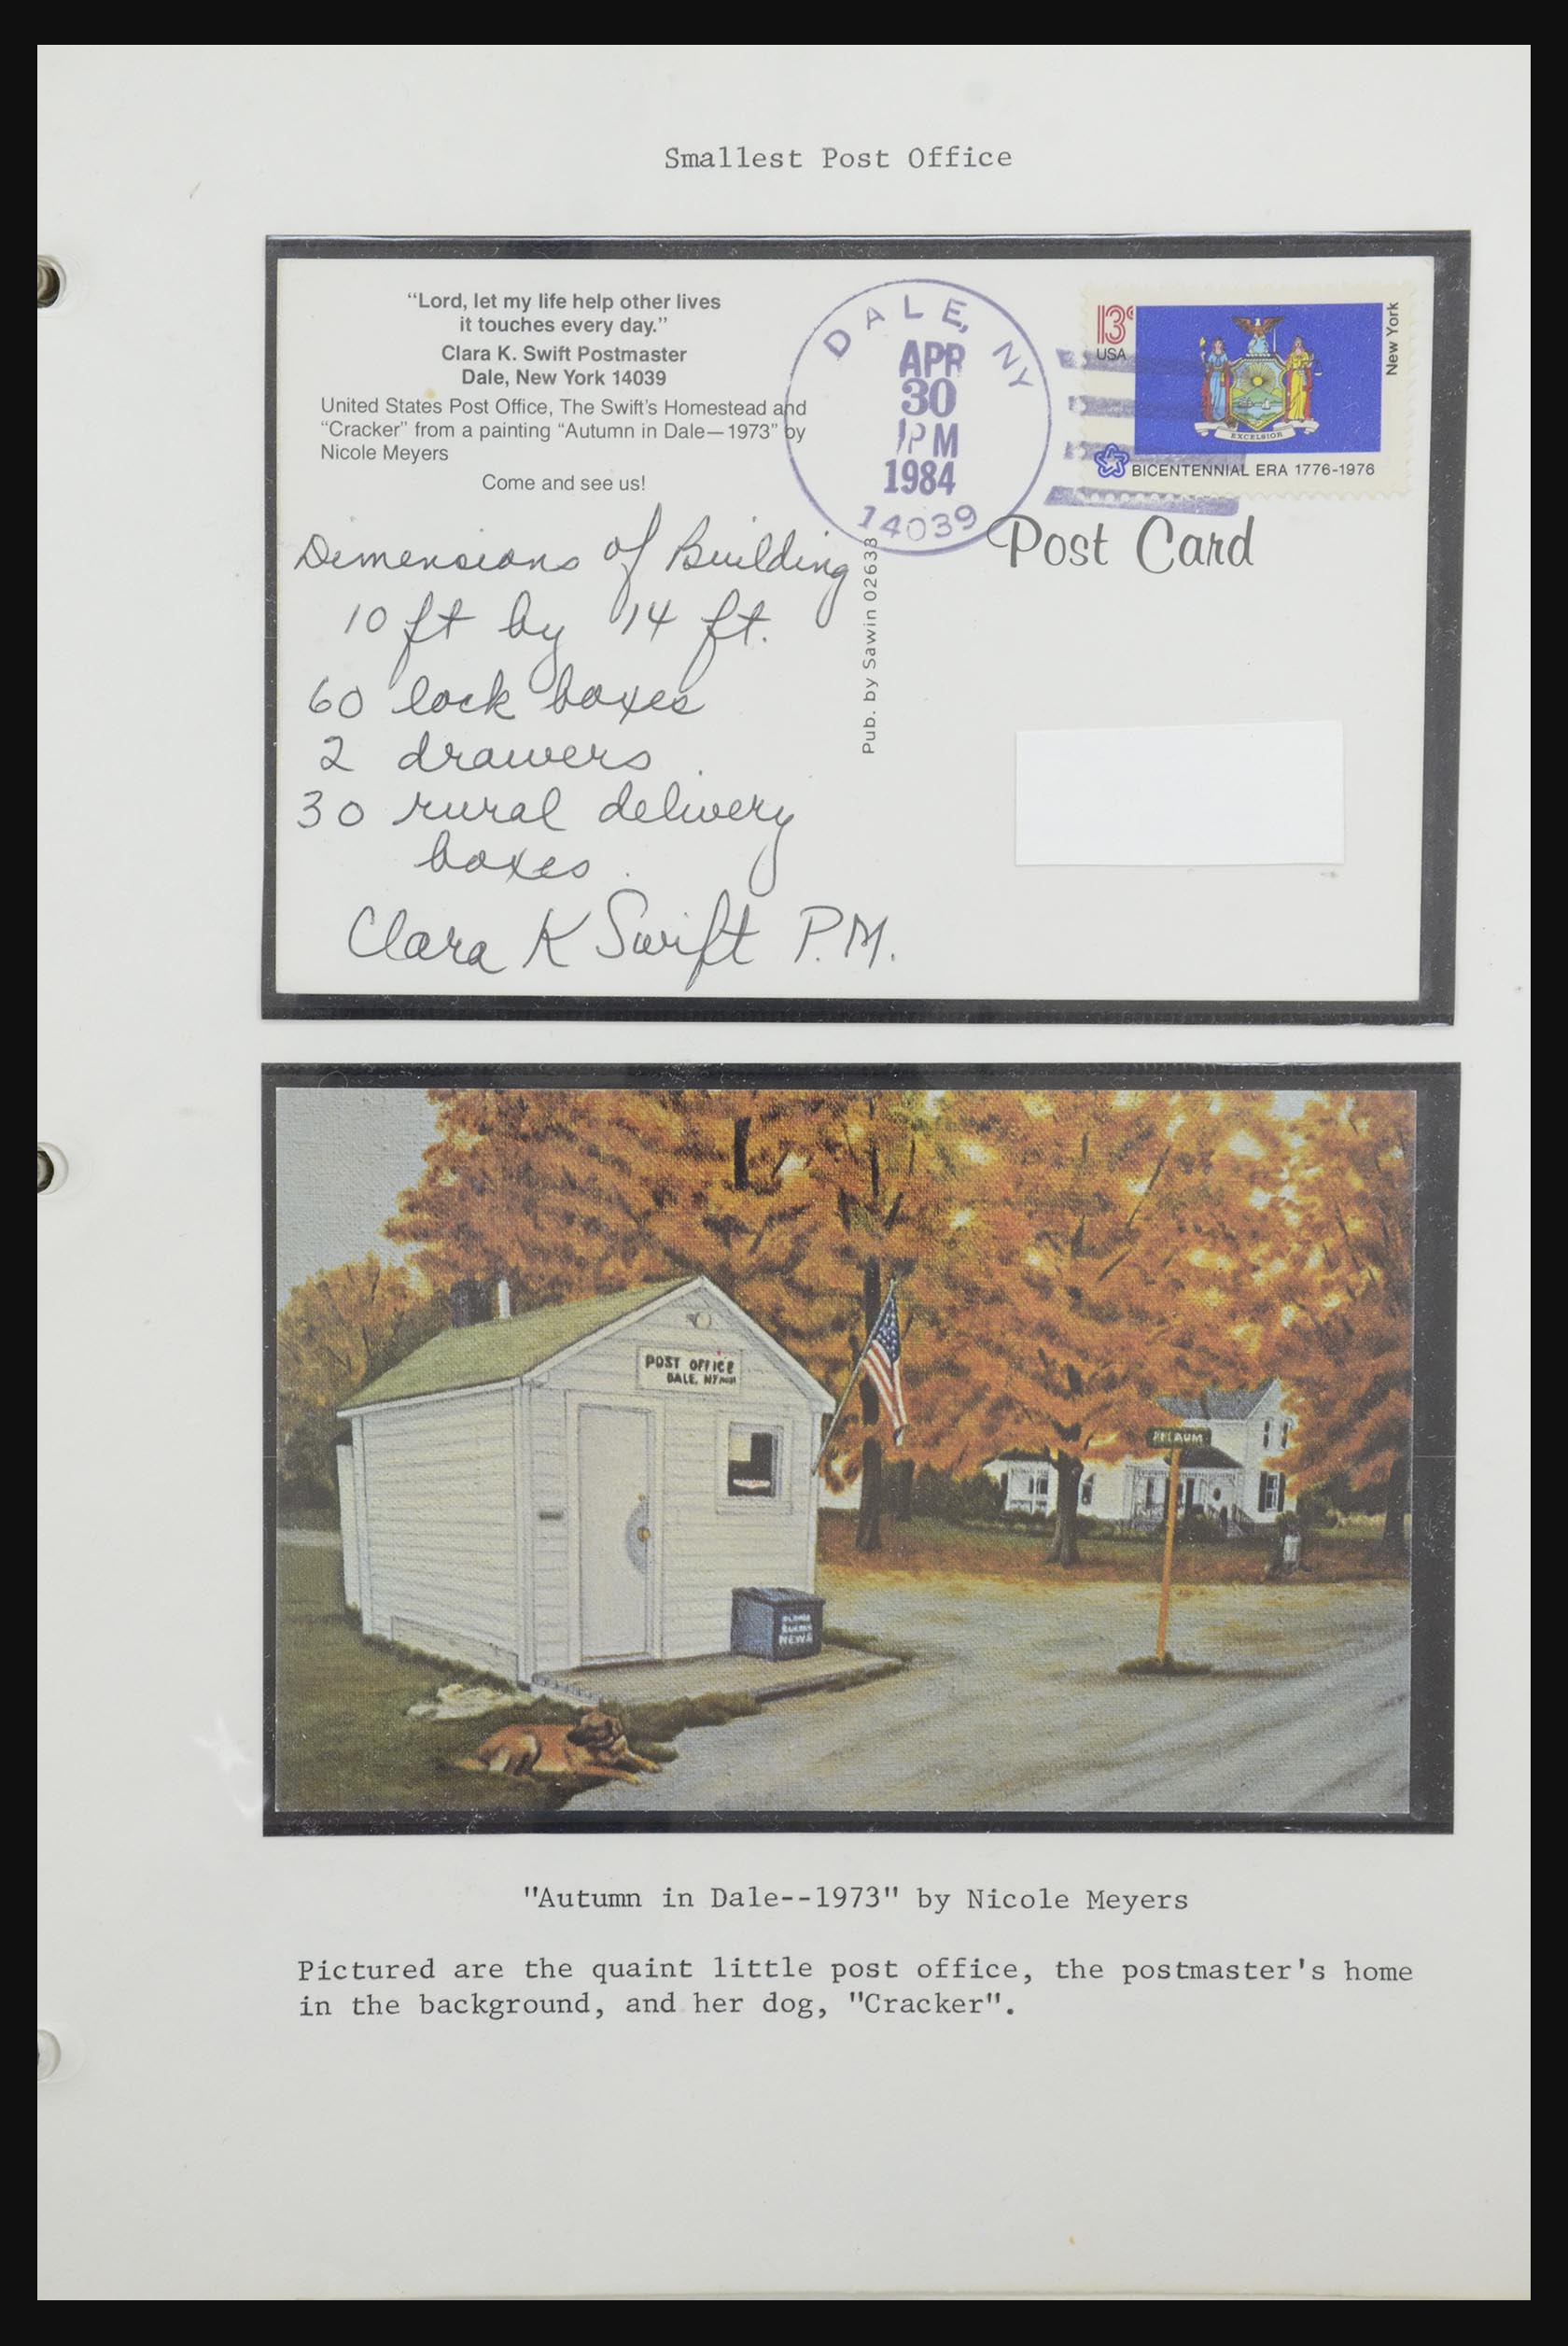 Smallest Post Office
“Lord, let my life help other lives
it touches every day.”
Clara K. Swift Postmaster
Dale, New York 14039
United States Post Office, The Swift's Homestead and
“Cracker” from a painting “Autumn in Dale—1973” by
Nicole Meyers
Come and see us!
DALE, NY
APR
30
PM
1984
14039
13c
USA
New York
EXCELSIOR
BICENTENNIAL ERA 1776-1976
Post Card
Dimensions of Building
10 ft by 14 ft.
60 lock boxes
2 drawers
30 rural delivery
boxes
Clara K Swift P.M.
Pub. by Sawin 02633
POST OFFICE
DALE, NY
NEWS
"Autumn in Dale--1973" by Nicole Meyers
Pictured are the quaint little post office, the postmaster's home
in the background, and her dog, "Cracker".